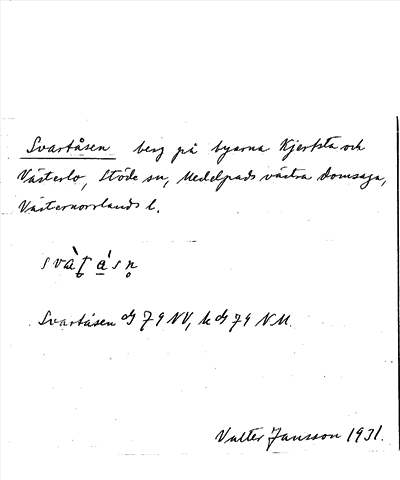 Svartåsen berg på byarna Kjertsta och
Västerlo, Stöde sn, Medelpads västra domsaga,
Västernorrlands l.
svàʈásn̥
Svartåsen 79 NV, 79 NM.
Valter Jansson 1931.